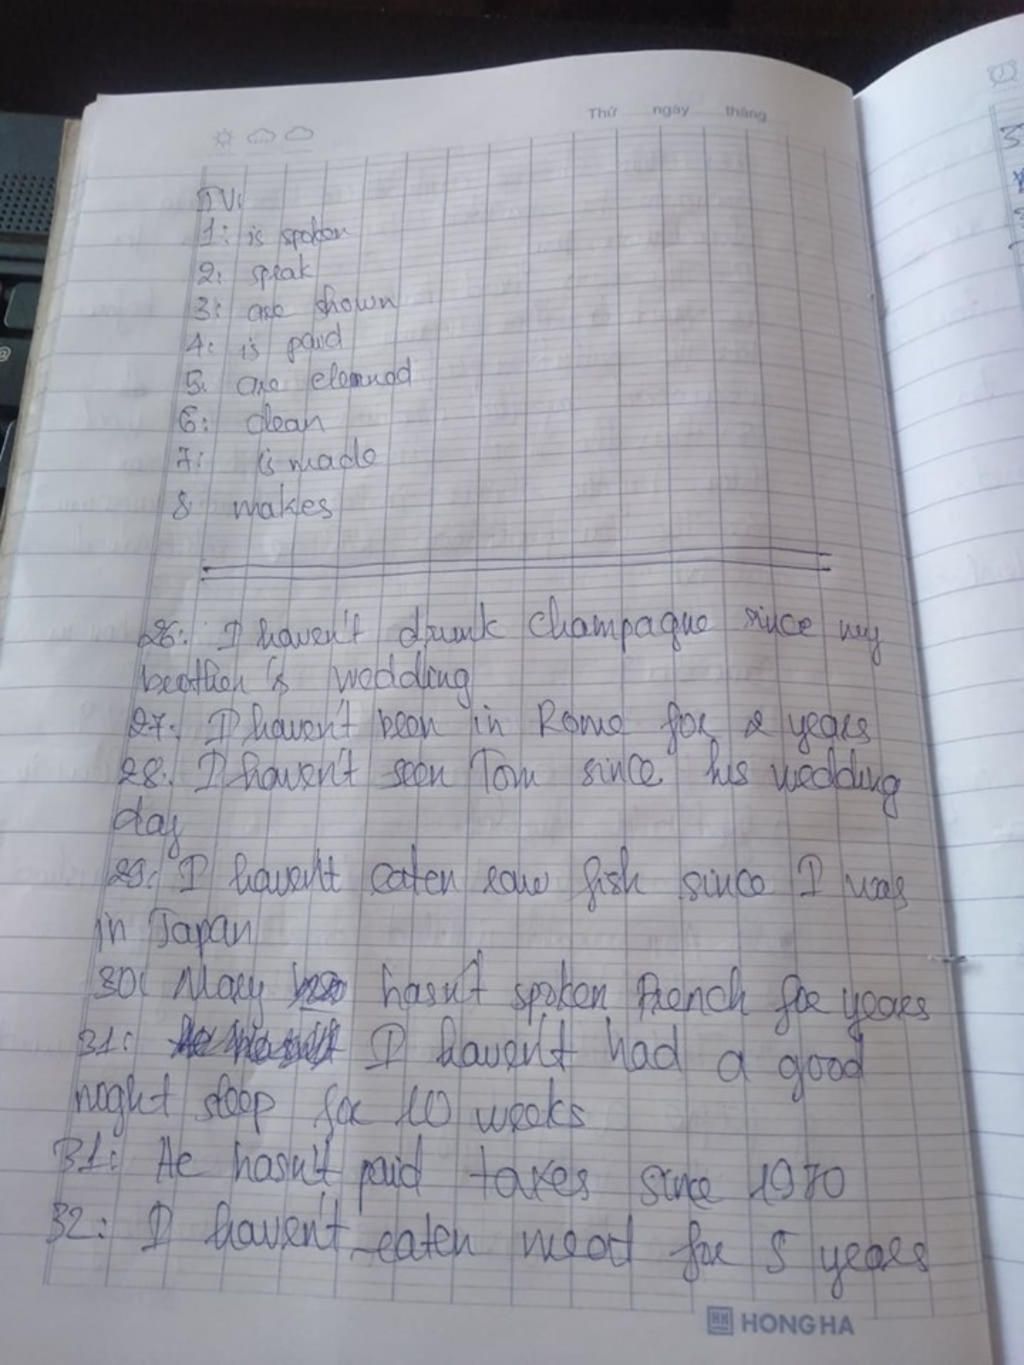 Thứ ngày tháng
IV:
1: is spoken
2: speak
3: are shown
4: is paid
5. are
6: clean
7: is made
8 makes
26: I haven't drunk champagne since my
brother's wedding
27: I haven't been in Rome for 2 years
28: I haven't seen Tom since his wedding
day
29: I haven't eaten raw fish since I was
in Japan
30: Mary hasn't spoken French for years
31: I haven't had a good
noght sleep for 10 weeks
31: He hasn't paid taxes since 1970
32: I haven't eaten meat for 5 years
HONG HA